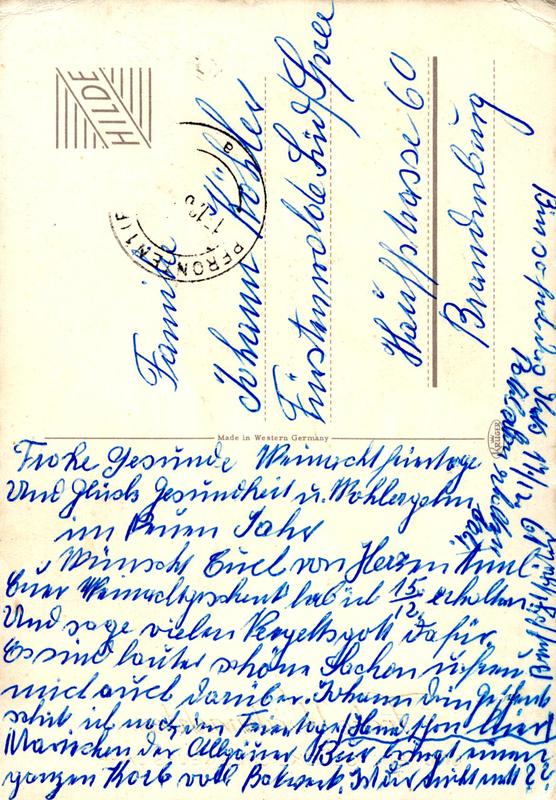 HILDE
PFRONTEN 1
Familie
Johann Köhler
Fürstenwalde Süd/Spree
Hauffstrasse 60
Brandenburg
Made in Western Germany
KRÜGER
Frohe Gesunde Weinachtsfeiertage
Und Glück Gesundheit u. Wohlergehn
im Neuen Jahr
Wünscht Euch von Herzen
Euer Weinachtsgeschenk hab ich 15/12 erhalten
Und sage vielen Vergeltsgott dafür
Es sind lauter schöne Sachen u. freu
mich auch darüber. Johann dein Geschenk
schik ich nach den Feiertage
der Allgäuer Bur bringt einen
ganzen Korb voll
17/12 61